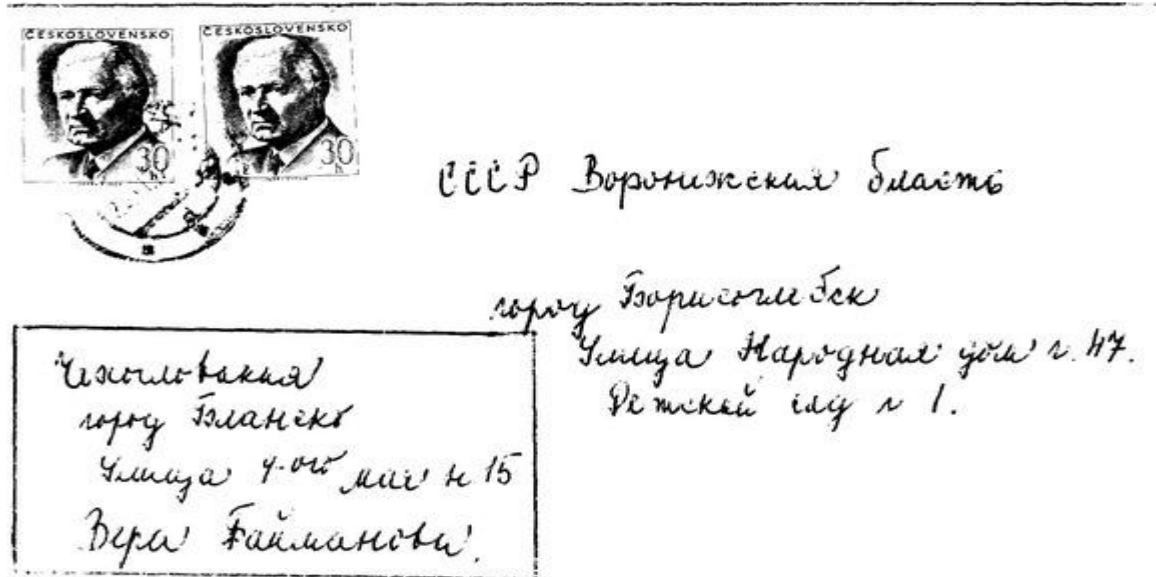 ČESKOSLOVENSKO
ČESKOSLOVENSKO
30
30
СССР Воронижская бласть
город Борисоглебск
Улица Народная дом г. 47.
Детский сад г 1.
Чехословакия
город Бланско
Улица 9-ого мая н 15
Вера